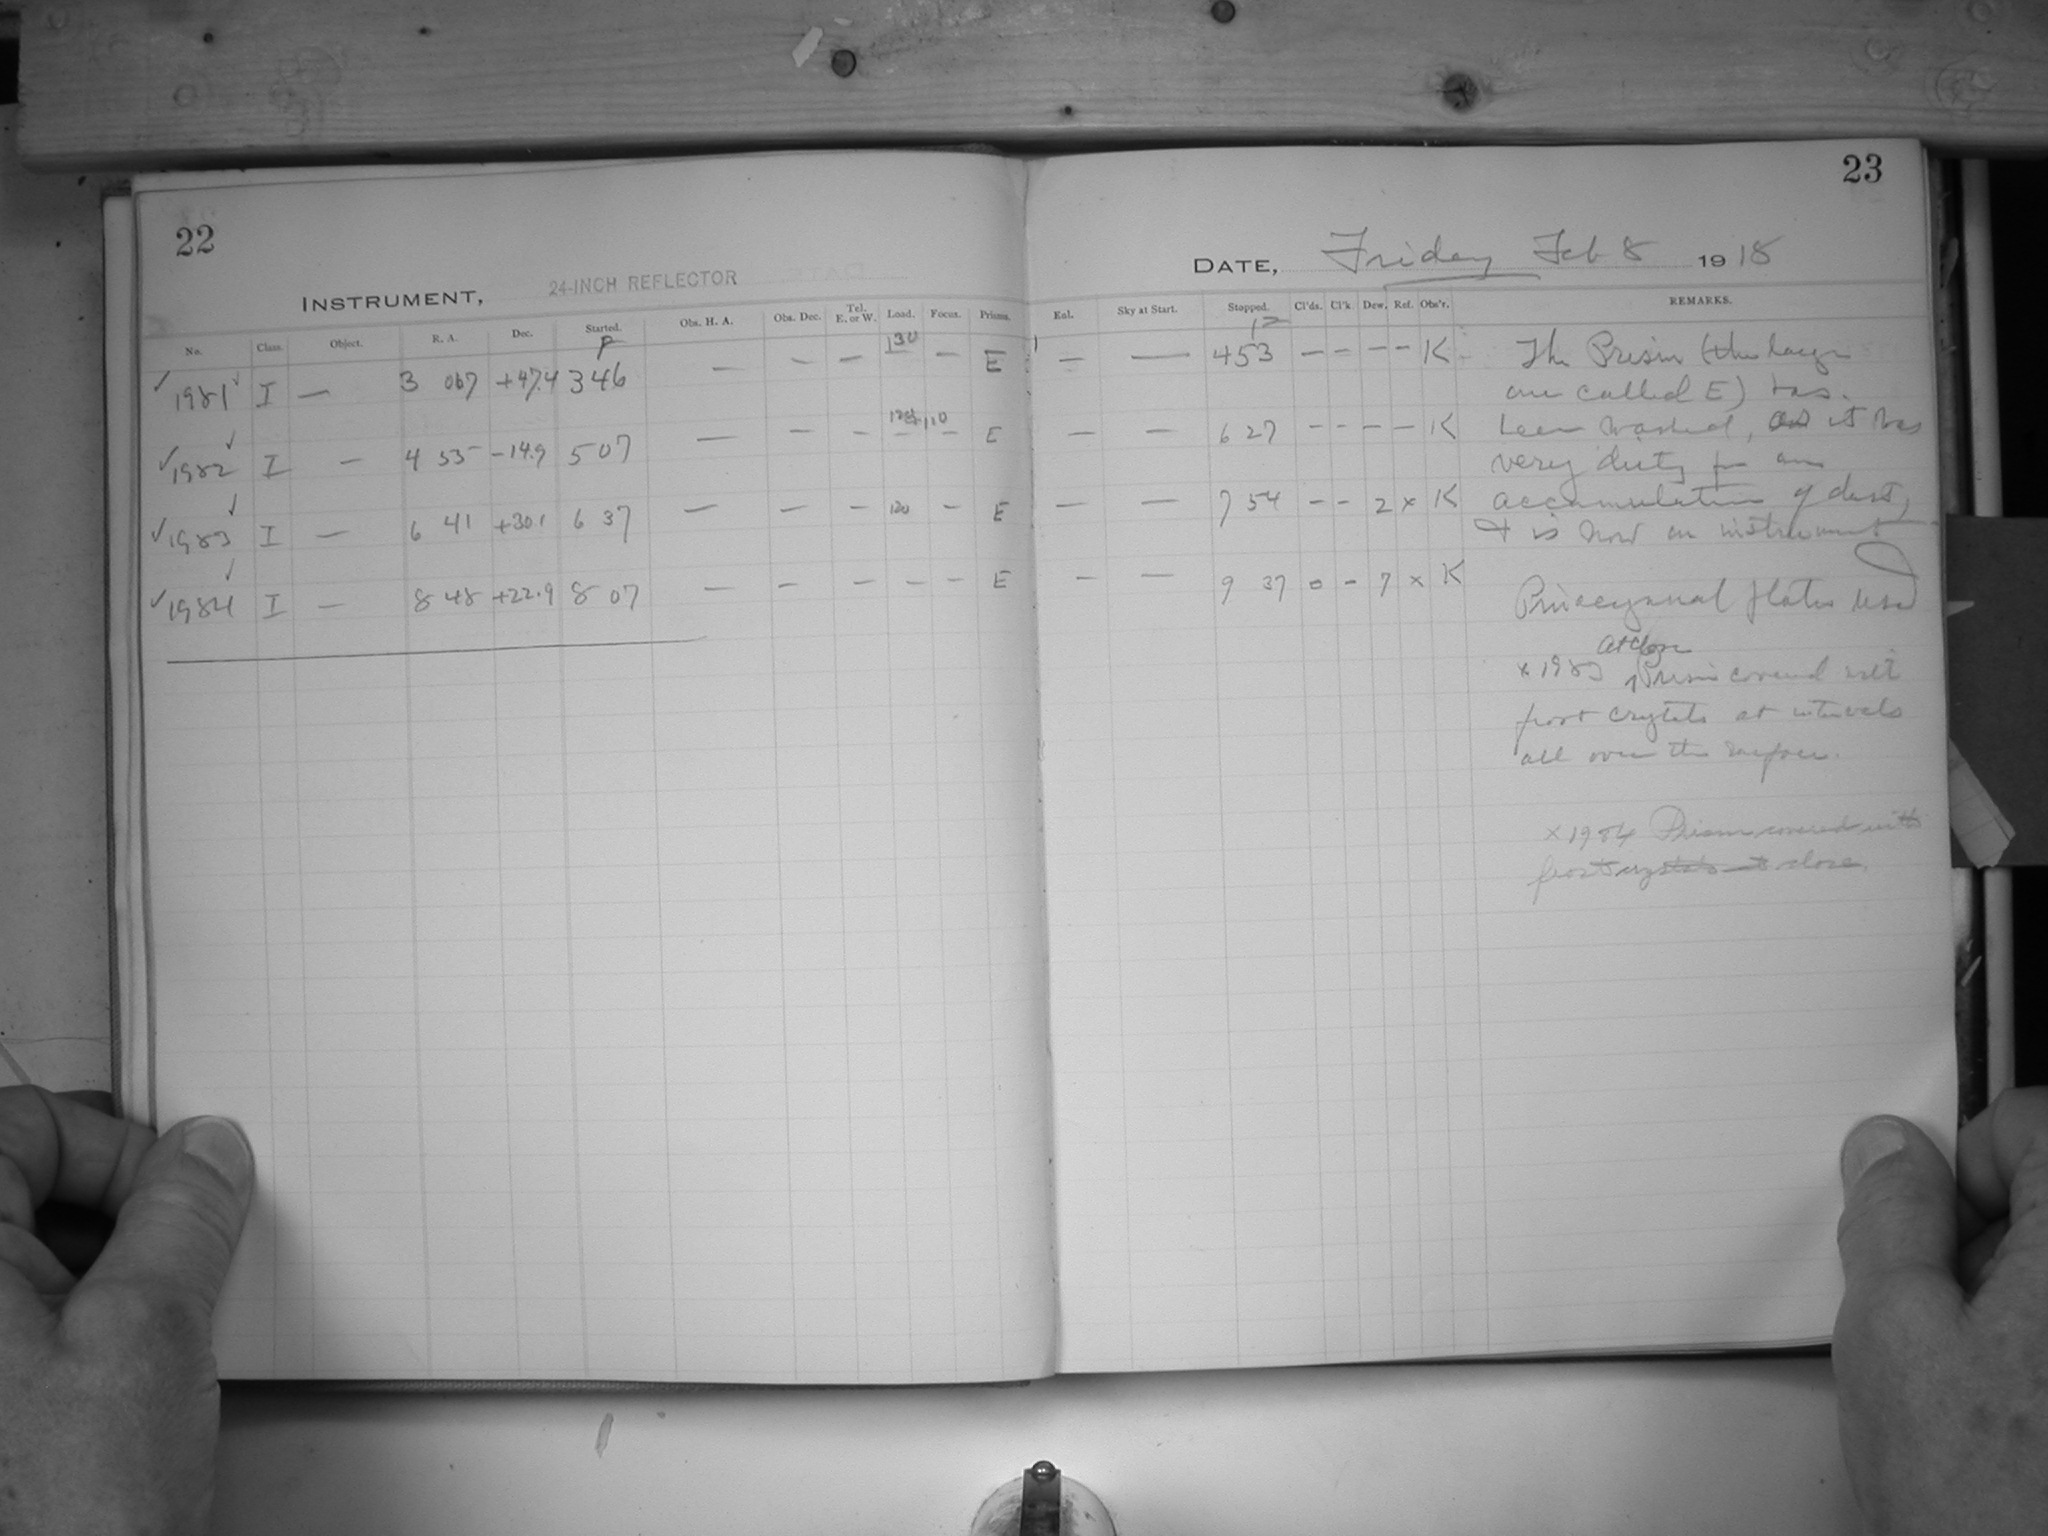 22
INSTRUMENT, 24-INCH REFLECTOR
No. Class. Object. R. A. Dec. Started. Obs. H. A. Obs. Dec. Tel. E. or W. Load. Focus. Prisms.
P
✓ 1981 ✓ I — 3 067 +47.4 3 46 — — — 130 — E
✓ 1982 ✓ I — 4 55 -14.9 5 07 — — — — — E
✓ 1983 ✓ I — 6 41 +30.1 6 37 — — — 120 — E
✓ 1984 ✓ I — 8 48 +22.9 8 07 — — — — — E
23
DATE, Friday Feb 8 1918
Eol. Sky at Start. Stopped. Cl'ds. Cl'k. Dew. Ref. Obs'r. REMARKS.
— — 4 53 — — — — K
— — 6 27 — — — — K
— — 7 54 — — 2 x K
— — 9 37 0 — 7 x K
The Prism (the large
one called E) has
been washed, as it was
very dirty for an
accumulation of dust,
+ is now on instrument
Pinacyanol Plates used
at close
x 1983 Prism covered with
frost crystals at intervals
all over the surface.
x 1984 Prism covered with
frost crystals at close.